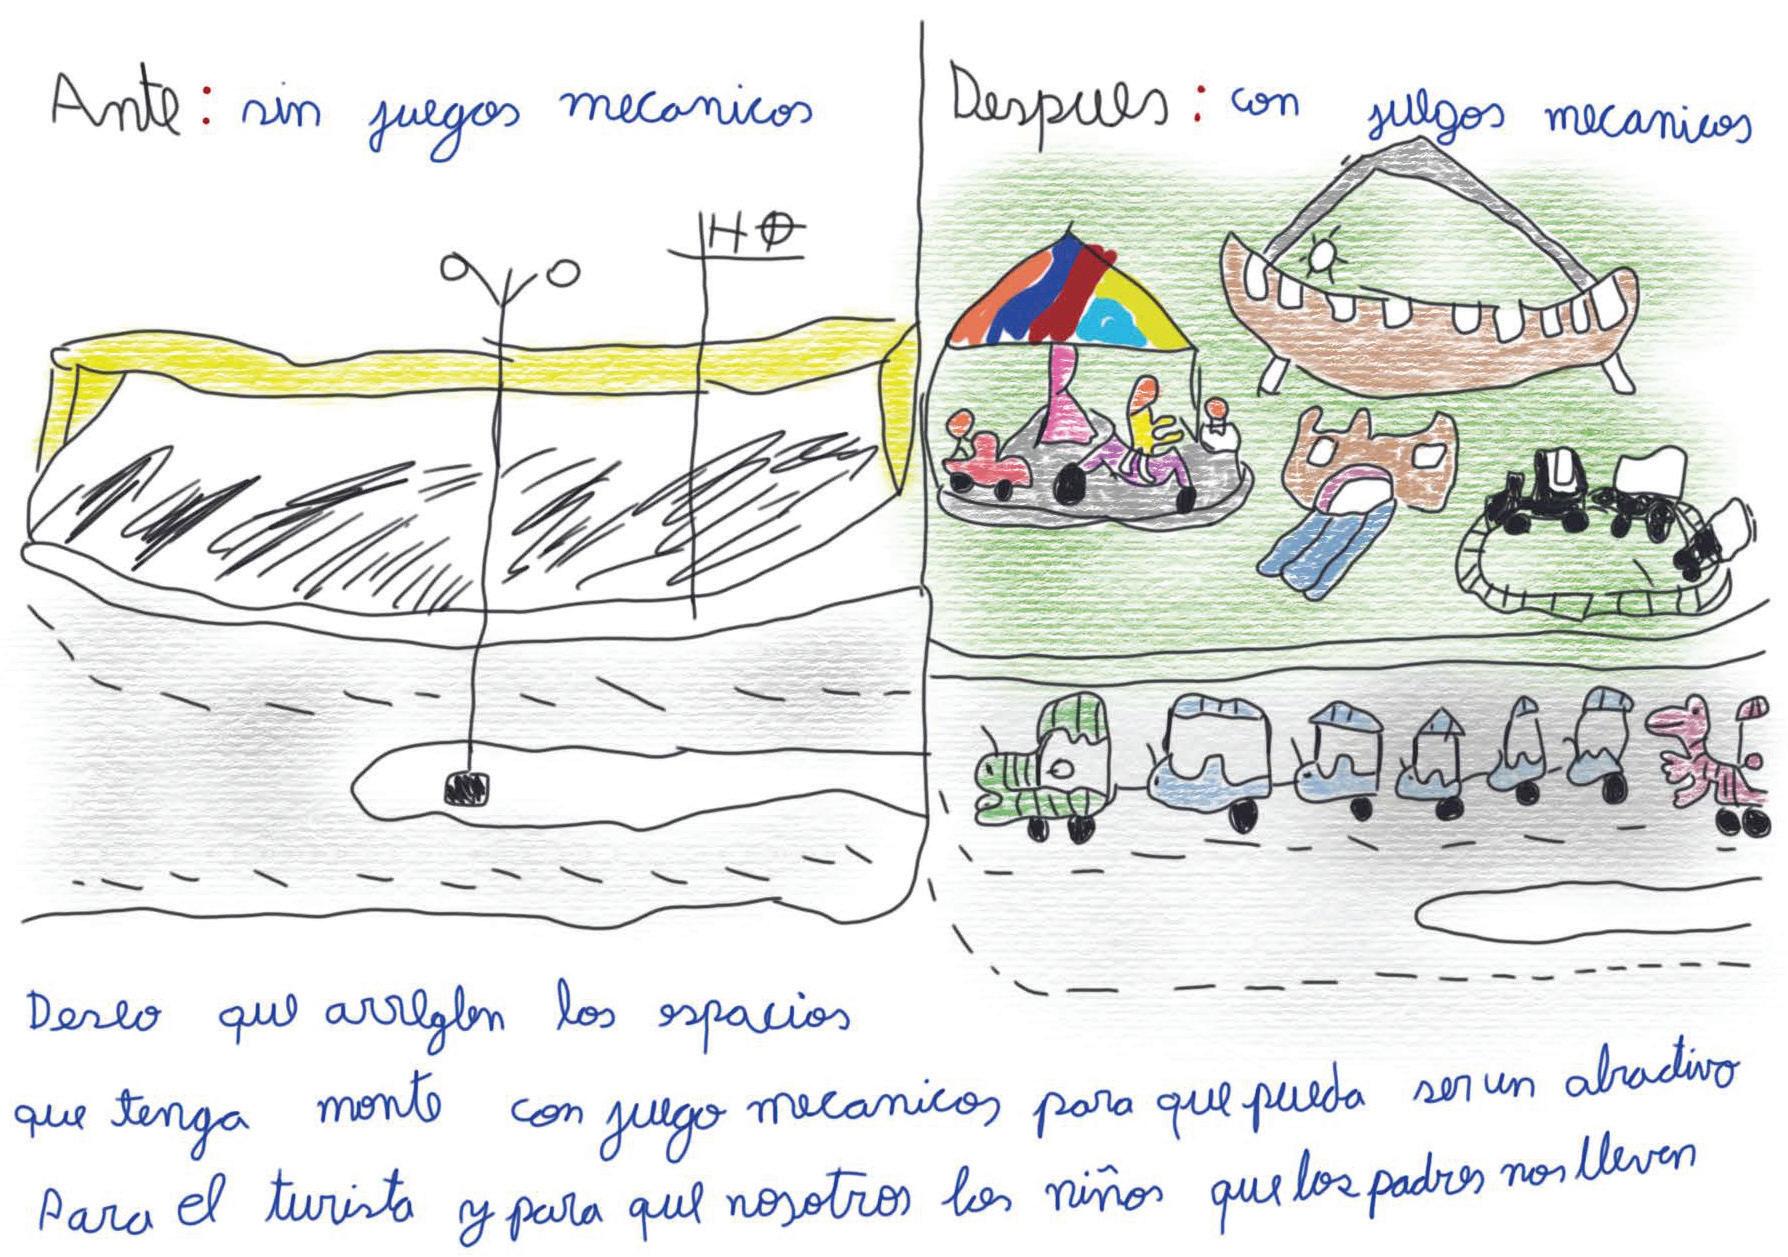 Ante: sin juegos mecanicos
Despues: con juegos mecanicos
Deseo que arreglen los espacios
que tenga monte con juego mecanicos para que pueda ser un atractivo
Para el turista y para que nosotros los niños que los padres nos lleven